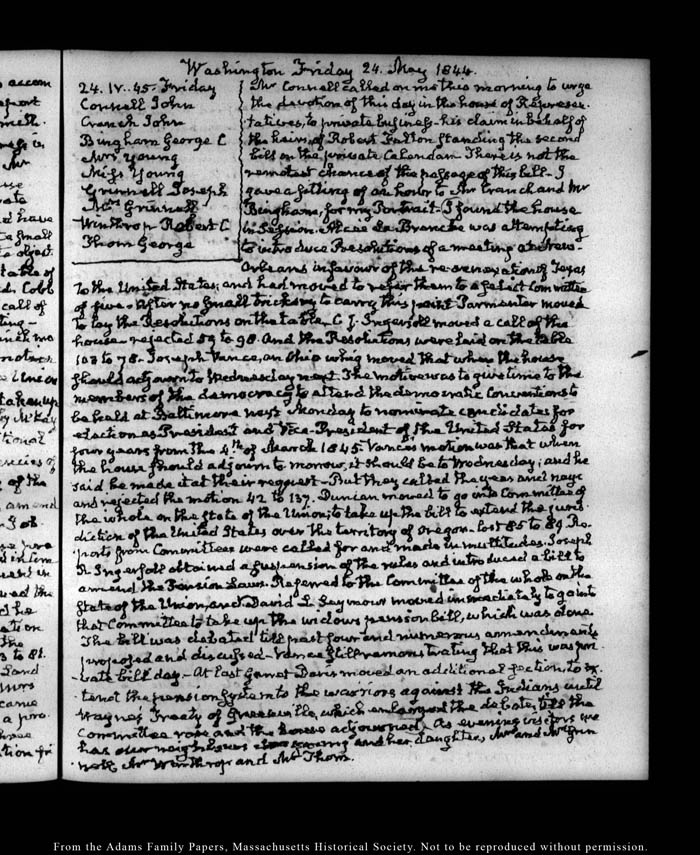 Washington Friday 24. May 1844.
24. IV..45. Friday
Connell John
Cranch John
Bingham George C
Mrs Young
Miss Young
Grinnell Joseph
Mrs Grinnell
Winthrop Robert C
Thom George
Mr Connell called on me this morning to urge
the devotion of this day in the house of Represen-
tatives, to private business his claim in behalf of
the heirs of Robert Fulton standing the second
bill on the private Calendar. There is not the
remotest chance of the passage of this bill. I
gave a sitting of an hour to Mr Cranch and Mr
Bingham, for my Portrait. I found the house
in Session. Alcee La Branche was attempting
to introduce Resolutions of a meeting at New-
Orleans in favour of the re-annexation of Texas
to the United States; and had moved to refer them to a select Committee
of five. After no small tricksey to carry this point Parmenter moved
to lay the Resolutions on the table, C. J. Ingersoll moved a call of the
house rejected 54 to 98. And the Resolutions were laid on the table
103 to 78. Joseph Vance, an Ohio whig moved that when the house
should adjourn to Wednesday next. The motive was to give time to the
members of the democracy to attend the democratic Conventions to
be held at Baltimore next Monday to nominate candidates for
election as President and Vice-President of the United States for
four years from the 4th of March 1845. Vance's motion was that when
the house should adjourn to morrow, it should be to Wednesday; and he
said he made it at their request. But they called the yeas and nays
and rejected the motion 42 to 137. Duncan moved to go into Committee of
the whole on the state of the Union; to take up the bill to extend the juris-
diction of the United States over the territory of Oregon. lost 85 to 89. Re-
ports from Committees were called for and made in multitudes. Joseph
R. Ingersoll obtained a suspension of the rules and introduced a bill to
amend the Pension Laws. Referred to the Committee of the whole on the
state of the Union, and David L. Seymour moved immediately to go into
that Committee to take up the widows pension bill, which was done.
The bill was debated till past four and numerous amendments
proposed and discussed. Vance still remonstrating that this was pri-
vate bill day. At last Garret Davis moved an additional section, to ex-
tend the pension system to the warriors against the Indians until
Wayne's Treaty of Greenville, which enlarged the debate, till the
Committee rose and the house adjourned. As evening visitors we
had our neighbours Young and her daughter, Mr and Mrs Grin-
nell Mr Winthrop and Mr Thom.
From the Adams Family Papers, Massachusetts Historical Society. Not to be reproduced without permission.